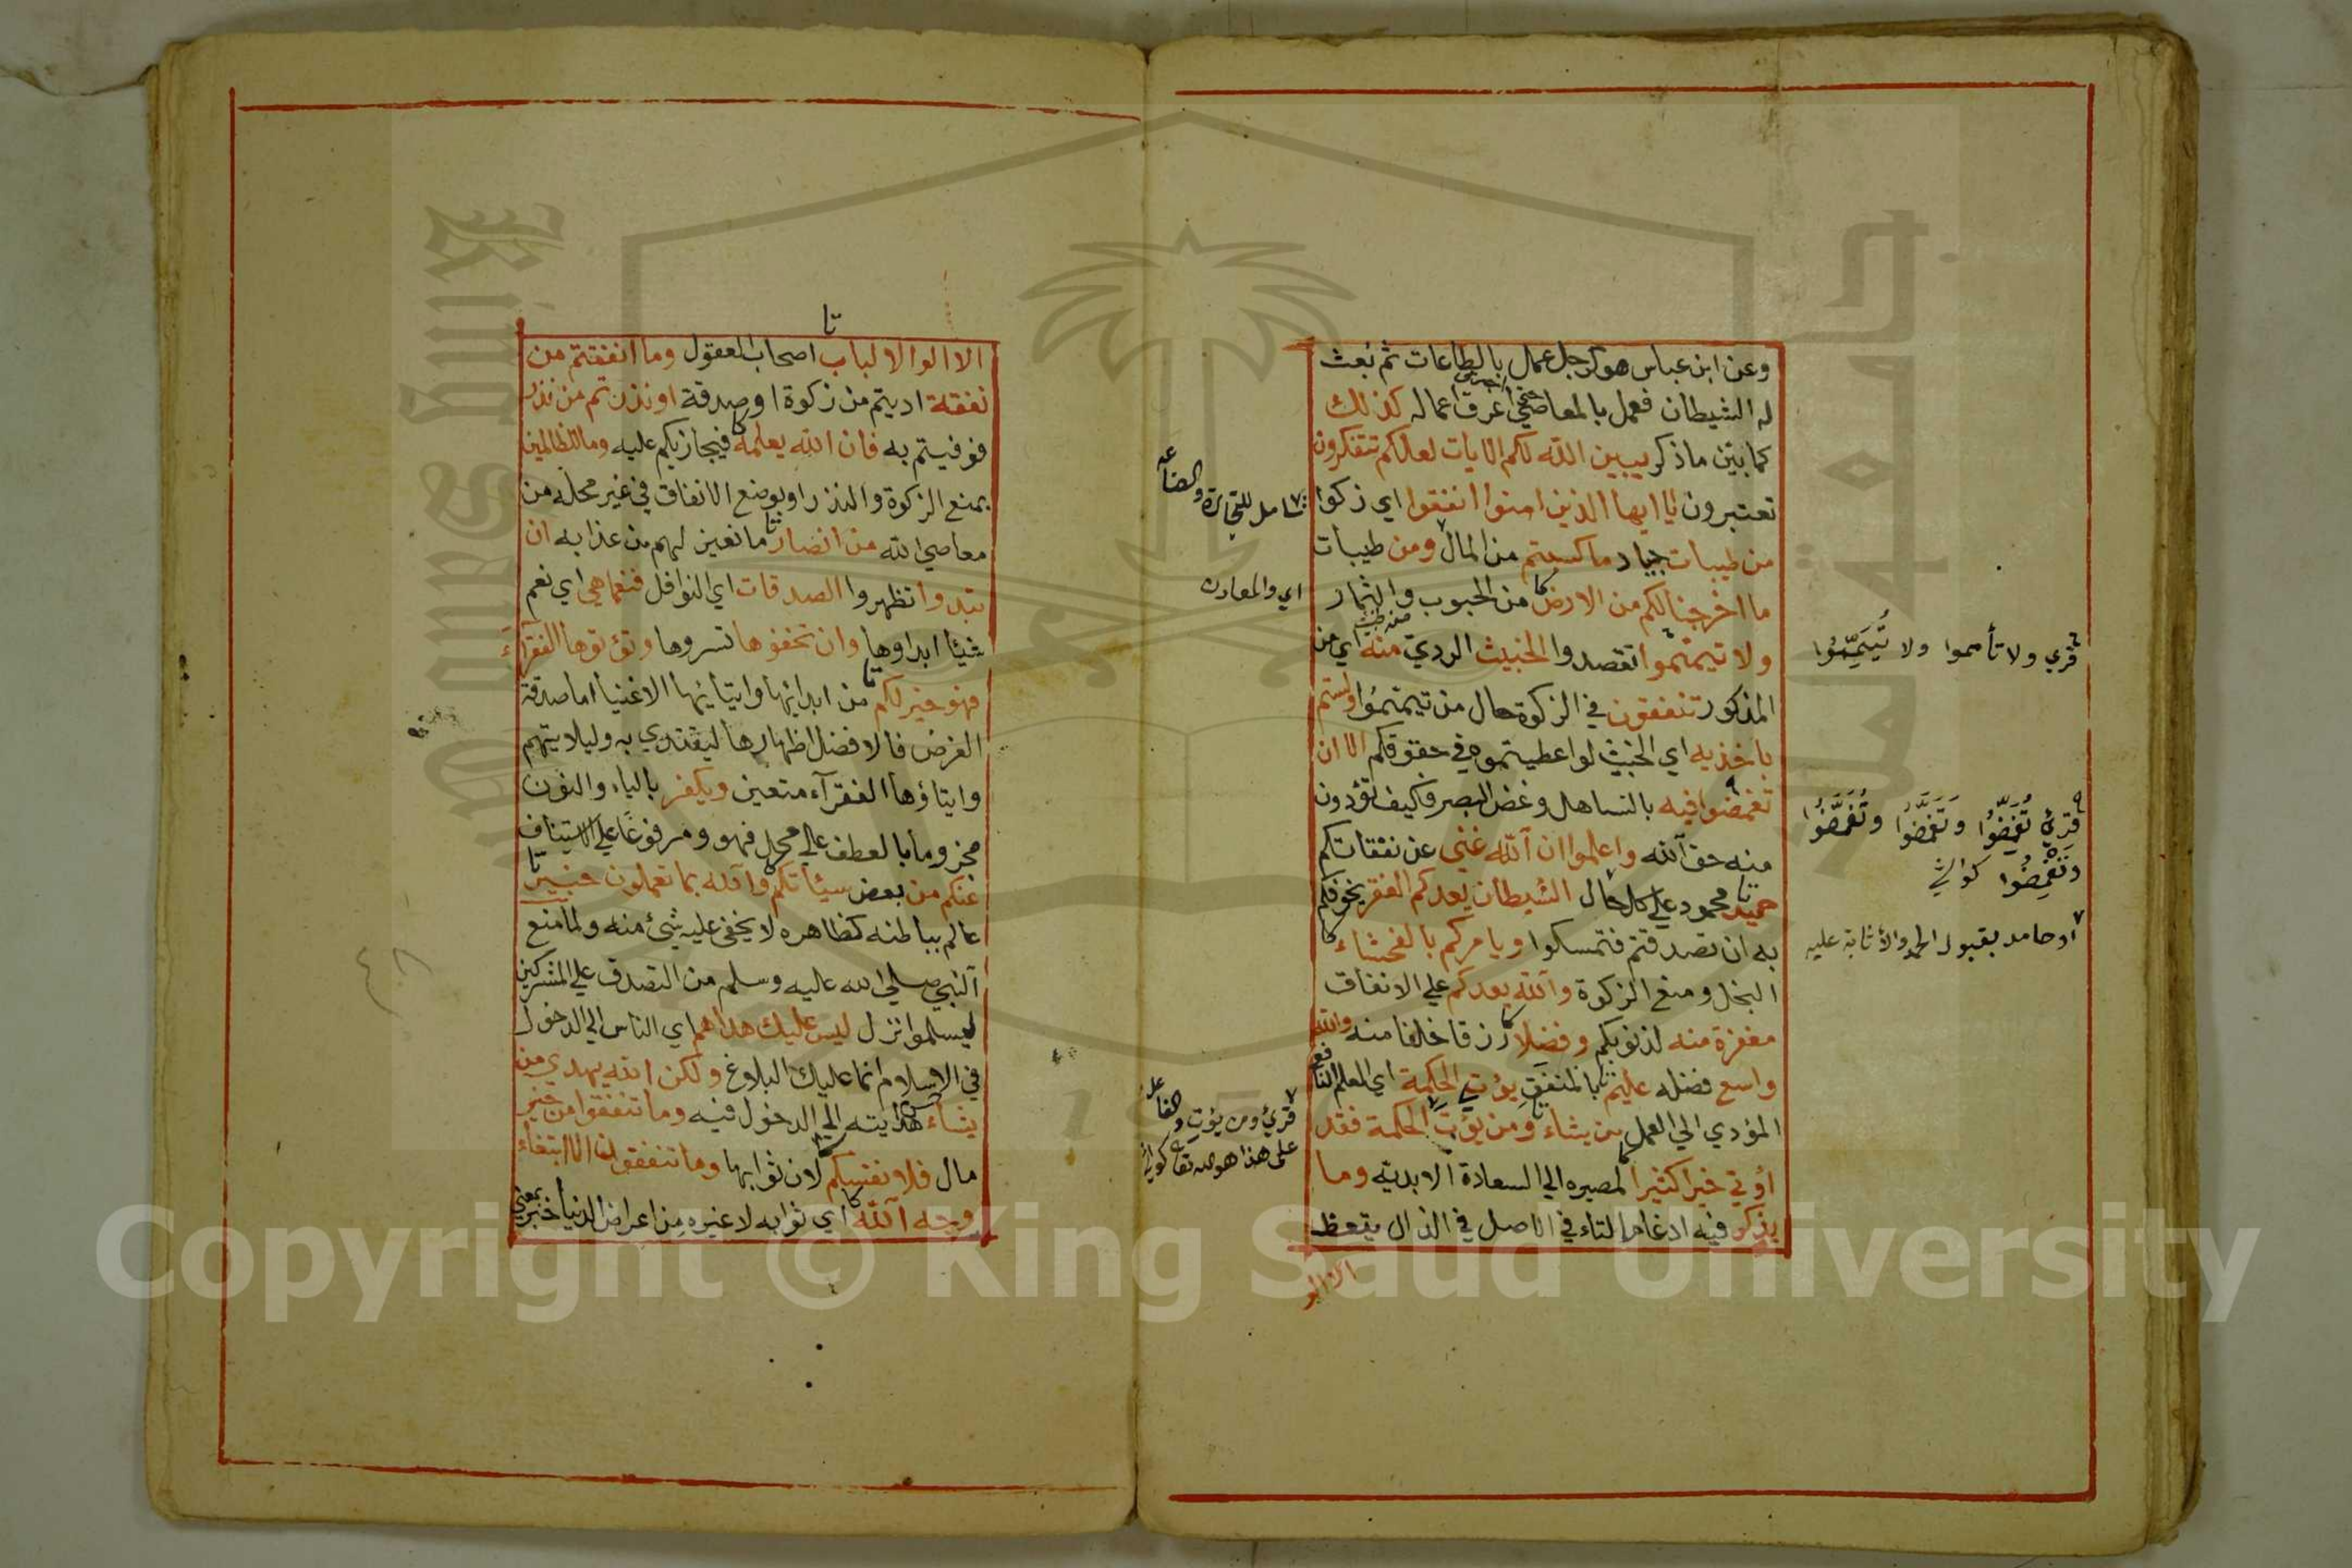 وعن ابن عباس هو كرجل عمل بالطاعات ثم بعث
له الشيطان فعمل بالمعاصي حتى أغرق أعماله كذلك
كما بين ما ذكر يبين الله لكم الايات لعلكم تتفكرون
تعتبرون يا ايها الذين امنوا انفقوا اي زكوا
من طيبات جياد ما كسبتم من المال ومن طيبات
ما اخرجنا لكم من الارض من الحبوب والثمار
ولا تيمموا تقصدوا الخبيث الردي منه اي من
المذكور تنفقون في الزكوة حال من تيمموا ولستم
باخذيه اي الخبيث لو اعطيتموه في حقوقكم الا ان
تغمضوا فيه بالتساهل وغض البصر فكيف تؤدون
منه حق الله واعلموا ان الله غني عن نفقاتكم
حميد محمود علي كل حال الشيطان يعدكم الفقر يخوفكم
به ان تصدقتم فتمسكوا ويامركم بالفحشاء
البخل ومنع الزكوة والله يعدكم علي الانفاق
مغفرة منه لذنوبكم وفضلا رزقا خلفا منه والله
واسع فضله عليم بالمنفق يؤتي الحكمة اي العلم النافع
المؤدي الي العمل من يشاء ومن يؤت الحكمة فقد
أوتي خيرا كثيرا لمصيره الي السعادة الابدية وما
يذكر فيه ادغام التاء في الاصل في الذال يتعظ
شامل للتجارة والصناعة
اي والمعادن
قري ولا تأمموا ولا تُيَمِّمُوا
قرئ تُغَمِّضُوا وتُغَمَّضُوا وتُغْمَضُوا
وتَغْمِضُوا كواشي
او حامد بقبول الحمد والاثابة عليه
قرئ ومن يؤت والفاعل
على هذا هو الله تعا كواشي
الا الوا الالباب اصحاب العقول وما انفقتم من
نفقة اديتم من زكوة او صدقة او نذرتم من نذر
فوفيتم به فان الله يعلمه فيجازيكم عليه وما للظالمين
بمنع الزكوة والنذر او بوضع الانفاق في غير محله من
معاصي الله من انصار مانعين لهم من عذابه ان
تبدوا تظهروا الصدقات اي النوافل فنعما هي اي نعم
شيئا ابداوها وان تخفوها تسروها وتؤتوها الفقرآء
فهو خير لكم من ابدائها وايتائها الاغنيا اما صدقة
الفرض فالافضل اظهارها ليقتدي به وليلا يتهم
وايتاؤها الفقرآء متعين ويكفر بالياء والنون
مجزوما بالعطف علي محل فهو ومرفوعًا علي الاستيناف
عنكم من بعض سيئاتكم والله بما تعملون خبير
عالم بباطنه كظاهره لا يخفي عليه شئ منه ولما منع
النبي صلي الله عليه وسلم من التصدق علي المشركين
ليسلموا نزل ليس عليك هداهم اي الناس الي الدخول
في الاسلام انما عليك البلاغ ولكن الله يهدي من
يشاء هدايته الي الدخول فيه وما تنفقوا من خير
مال فلانفسكم لان ثوابها وما تنفقون الا ابتغاء
وجه الله اي ثوابه لا غيره من اعراض الدنيا خبر بمعني
Copyright © King Saud University